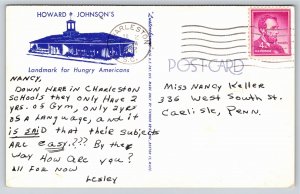 HOWARD JOHNSON'S
Landmark for Hungry Americans
CHARLESTON
S.C.
4¢
POSTCARD
NANCY,
DOWN HERE IN CHARLESTON
SCHOOLS they ONLY HAVE 2
YRS. OF GYM, ONLY 2YRS
OF A LANGUAGE, AND it
iS SAiD tHAt tHEiR SUbjECtS
ARE EASY.??? By thE
WAy HOW ARE you?
All FOR NOW
LESLEY
MiSS NANCY KELLER
336 WESt SOUtH St.
CARliSlE, PENN.